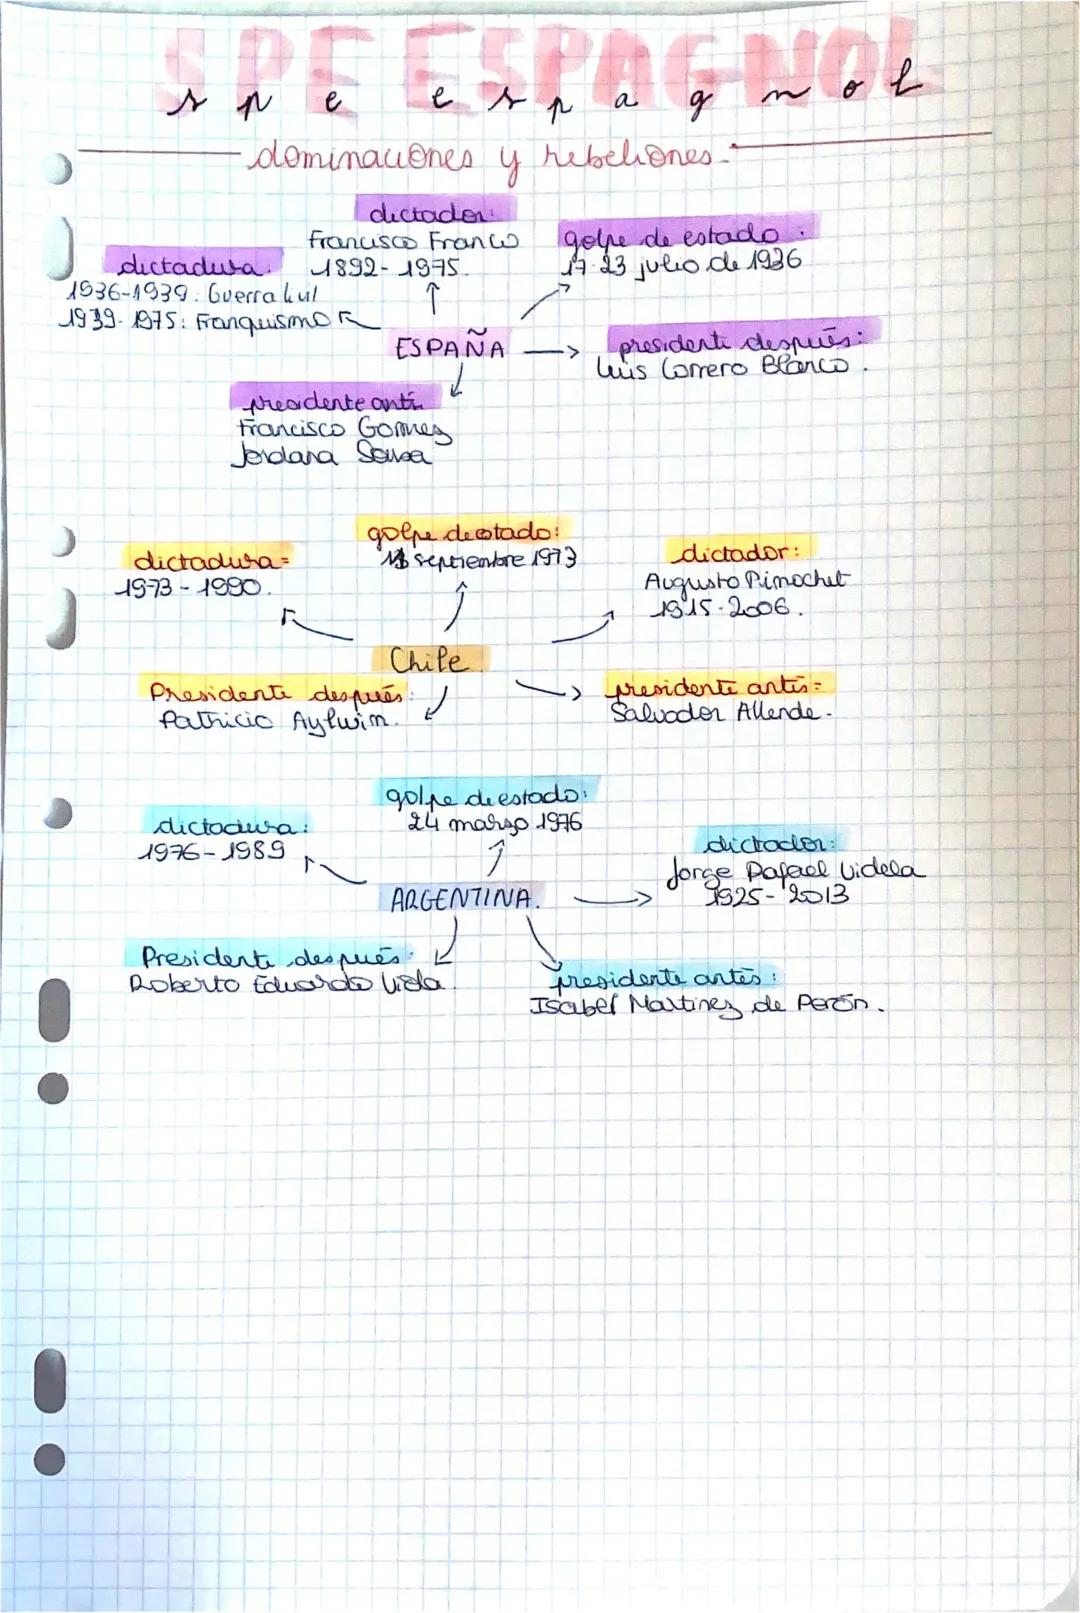 SPE ESPAGNOL
spe espagnol
dominaciones y rebeliones.
dictador:
Francisco Franco
1892-1975.
golpe de estado:
17-23 julio de 1936
dictadura:
1936-1939: Guerra Civil
1939-1975: Franquismo
ESPAÑA
presidente después:
Luis Correro Blanco.
presidente antes
Francisco Gomez
Jordana Sousa
golpe de estado:
septiembre 1973
dictadura=
1973-1990.
dictador:
Augusto Pinochet
1915-2006.
Chile
Presidente después:
Patricio Aylwin.
presidente antes=
Salvador Allende.
golpe de estado:
24 marzo 1976
dictadura:
1976-1989
dictador:
Jorge Rafael Videla
1925-2013
ARGENTINA.
Presidente después:
Roberto Eduardo Viola.
presidente antes:
Isabel Martinez de Perón.